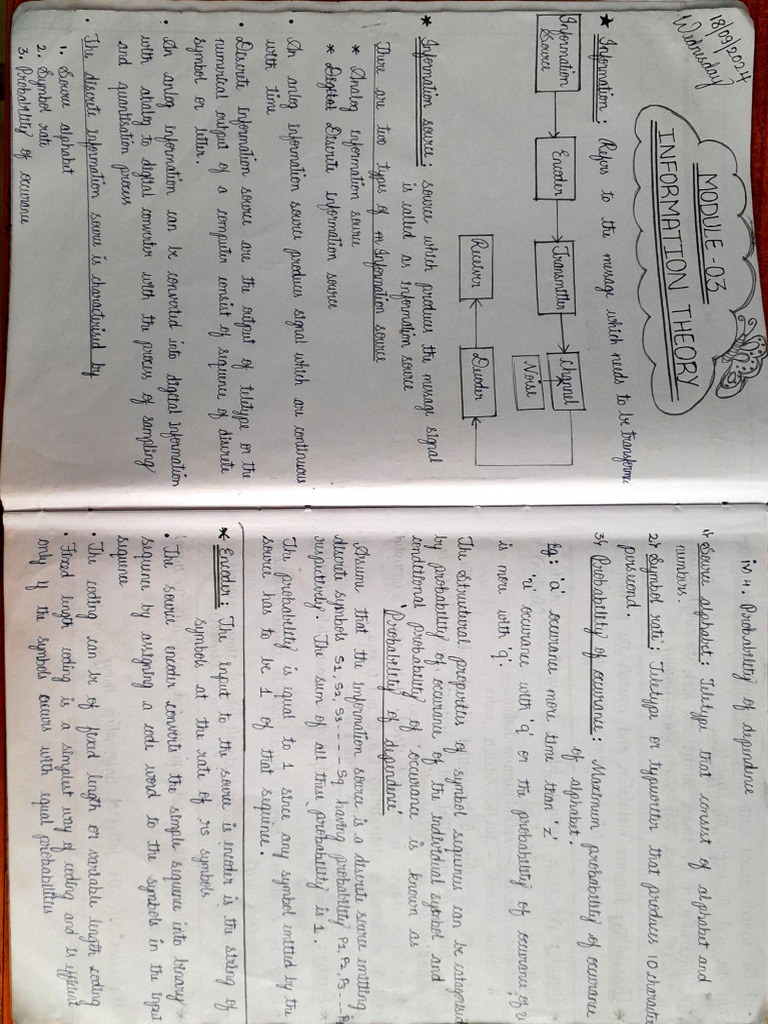 18/09/2024
Wednesday
MODULE-03
INFORMATION THEORY
★ Information: Refers to the message which needs to be transform
Information Source
Encoder
Transmitter
Channel
Noise
Receiver
Decoder
★ Information source: source which produces the message signal
is called as information source
There are two types of information source
* Analog information source
* Digital Discrete information source
• An anlog information source produces signal which are continuous
with time
• Discrete information source are the output of teletype or the
numerical output of a computer consist of sequence of discrete
symbol or letter.
• An anlog information can be converted into digital information
with analog to digital converter with the process of sampling
and quantisation process
• The discrete information source is characterised by
1. Source alphabet
2. Symbol rate
3. Probability of occurance
4. Probability of dependence
1) Source alphabet: Teletype that consist of alphabet and
numbers.
2) Symbol rate: Teletype or typewriter that produces 10 character
persecond.
3) Probability of occurance: Maximum probability of occurance
of alphabet.
Eg: 'a' occurance more time than 'z'
'u' occurance with 'q' or the probability of occurance of u
is more with 'q'.
The Structural properties of symbol sequences can be catagorised
by probability of occurance of the individual symbol and
conditional probability of occurance is known as
'Probability of dependence'
Assume that the information source is a discrete source emitting
discrete symbols S1, S2, S3---- Sq having probability P1- P2, P3---
respectively. The sum of all these probability is 1.
The probability is equal to 1 since any symbol emitted by the
source has to be 1 of that sequence.
★ Encoder: The input to the source is encoder is the string of
symbols at the rate of rs symbols
• The source encoder converts the simple sequence into binary
sequence by assigning a code word to the symbols in the input
sequence
• The coding can be of fixed length or variable length coding
• Fixed length coding is a simplest way of coding and is efficient
only if the symbols occurs with equal probabilities